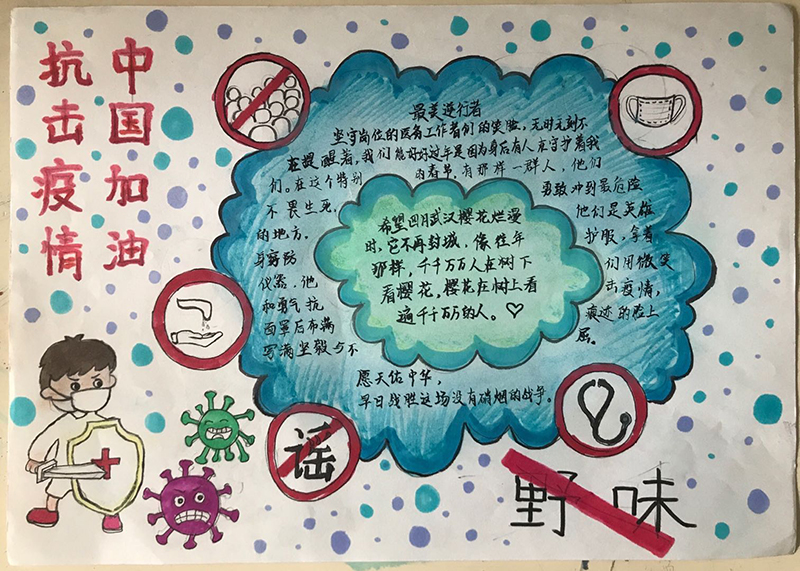 中国加油
抗击疫情
最美逆行者
坚守岗位的医务工作者们的笑脸，无时无刻不
在提醒着，我们能好好过年是因为身后有人在守护着我
们。在这个特别 的春节，有那样一群人，他们
不畏生死， 勇敢冲到最危险
的地方. 他们是英雄
身穿防 护服，拿着
仪器，他 们用微笑
和勇气抗 击疫情，
面罩后布满 痕迹的脸上
写满坚毅与不 屈。
愿天佑中华，
早日战胜这场没有硝烟的战争。
希望四月武汉樱花烂漫
时，它不再封城，像往年
那样，千千万万人在树下
看樱花，樱花在树上看
遍千千万万的人。
谣
野味